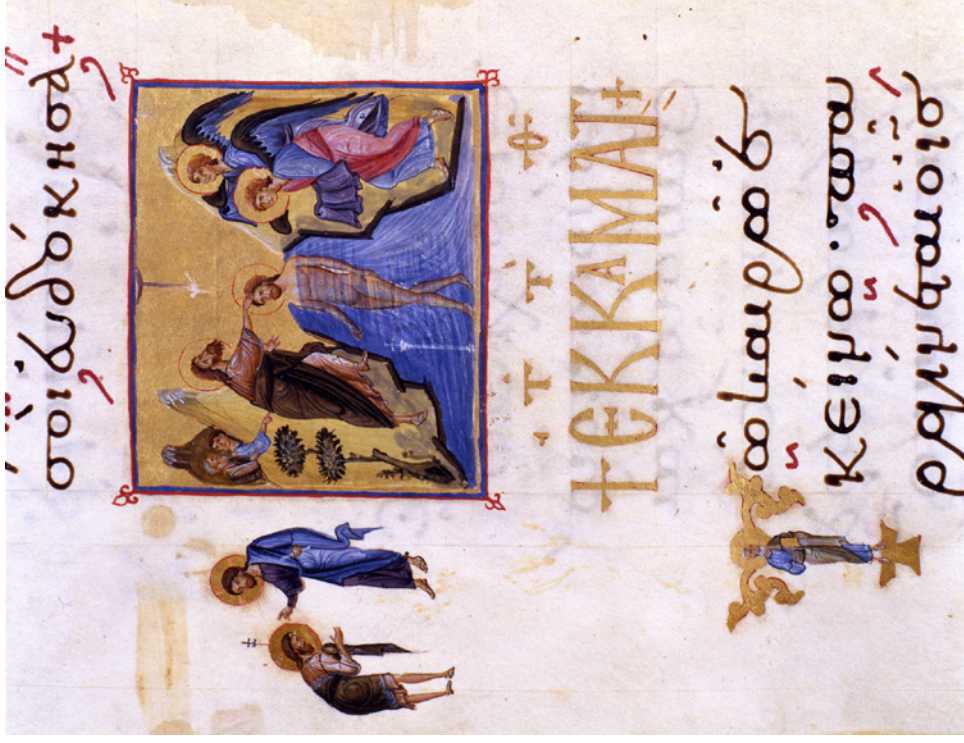 σοὶ εὐδόκησα+
+ΕΚ ΚΑΜΑΤ+
Τῶ καιρῶ ἐ
κείνω· πα
ραγίνεται ὁ ισ